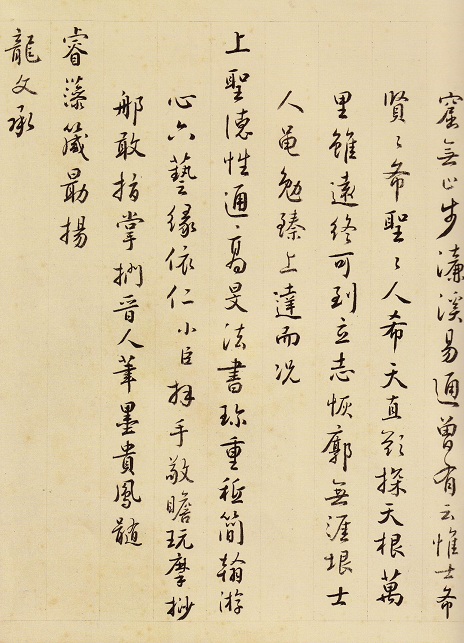 窟無止步濂溪易通曾有云惟士希
賢〻希聖〻人希天直欲探天根萬
里雖遠終可到立志恢廓無涯垠士
人黽勉臻上達而況
上聖德性通高旻法書珍重秪簡翰游
心六藝緣依仁小臣拜手敬瞻玩摩挱
那敢指掌捫晉人筆墨貴鳳髓
睿藻箴勖揚
龍文承